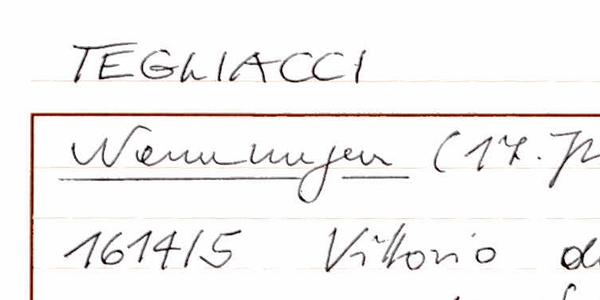 TEGLIACCI
Nennungen (17.
1614/5 Vittorio